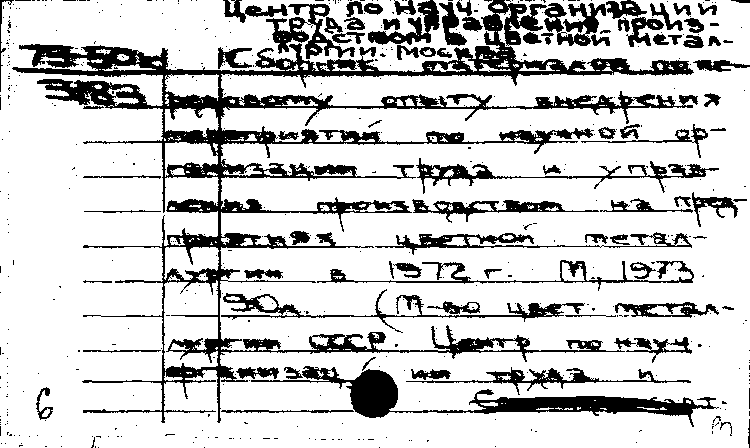 Центр по науч. организации
труда и управления произ-
водством в цветной метал-
лургии. Москва.
Сборник материалов по пе-
редовому опыту внедрения
мероприятий по научной ор-
ганизации труда и управ-
ления производством на пред-
приятиях цветной метал-
лургии в 1972 г. М., 1973.
90л. (М-во цвет. метал-
лургии СССР. Центр по науч.
организац ии труда и
6